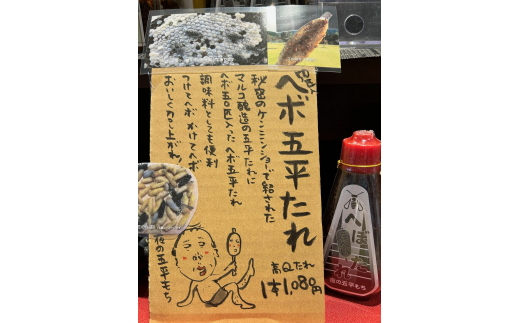 ヘボ五平たれ
秘密のケンミンショーで紹された
マルコ醸造の五平たれに
ヘボ五〇匹入った ヘボ五平たれ
調味料としても便利
つけてヘボ かけてヘボ
おいしく召し上がれ
の五平もち
高Qたれ
1本1,080円
へぼ
の五平もち